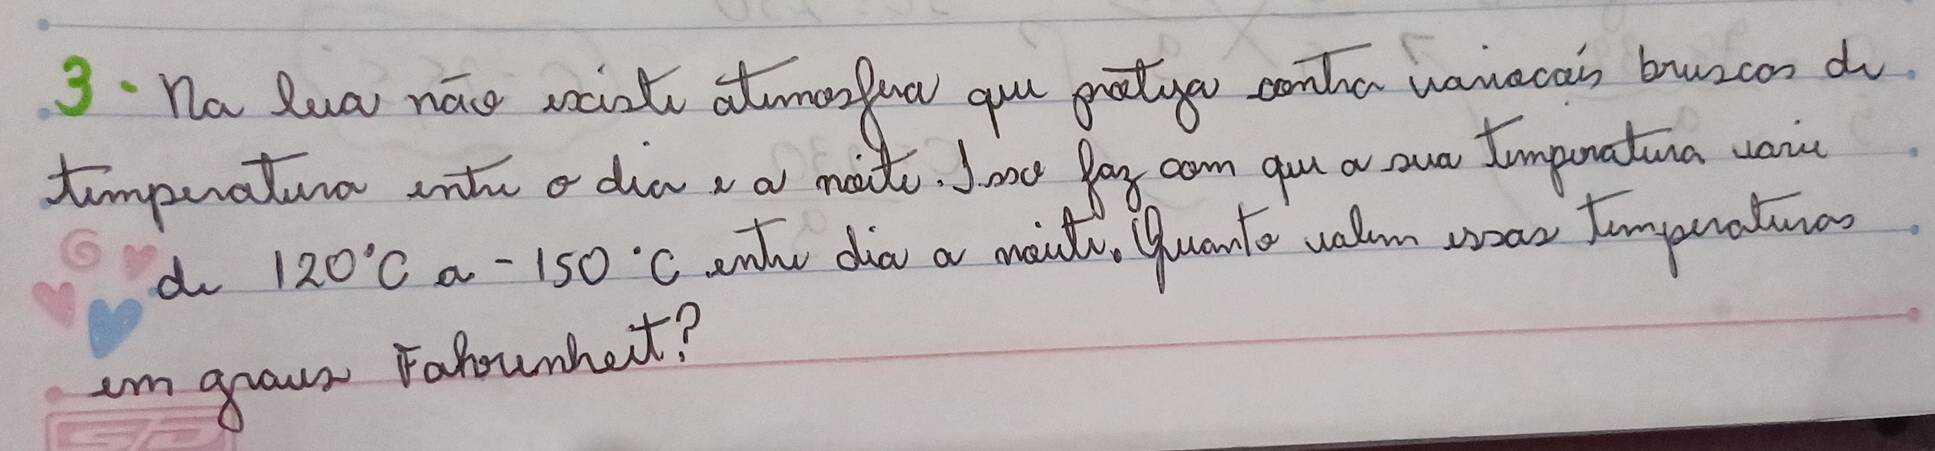 3. Na Lua não existe atimosfera que protega contra variacais bruscas de
temperatura entre o dia e a noite. Isso faz com que a sua temperatura varie
de 120°C a -150°C entre dia a noite. Quanto valem essas temperaturas
em graus Fahrenheit?